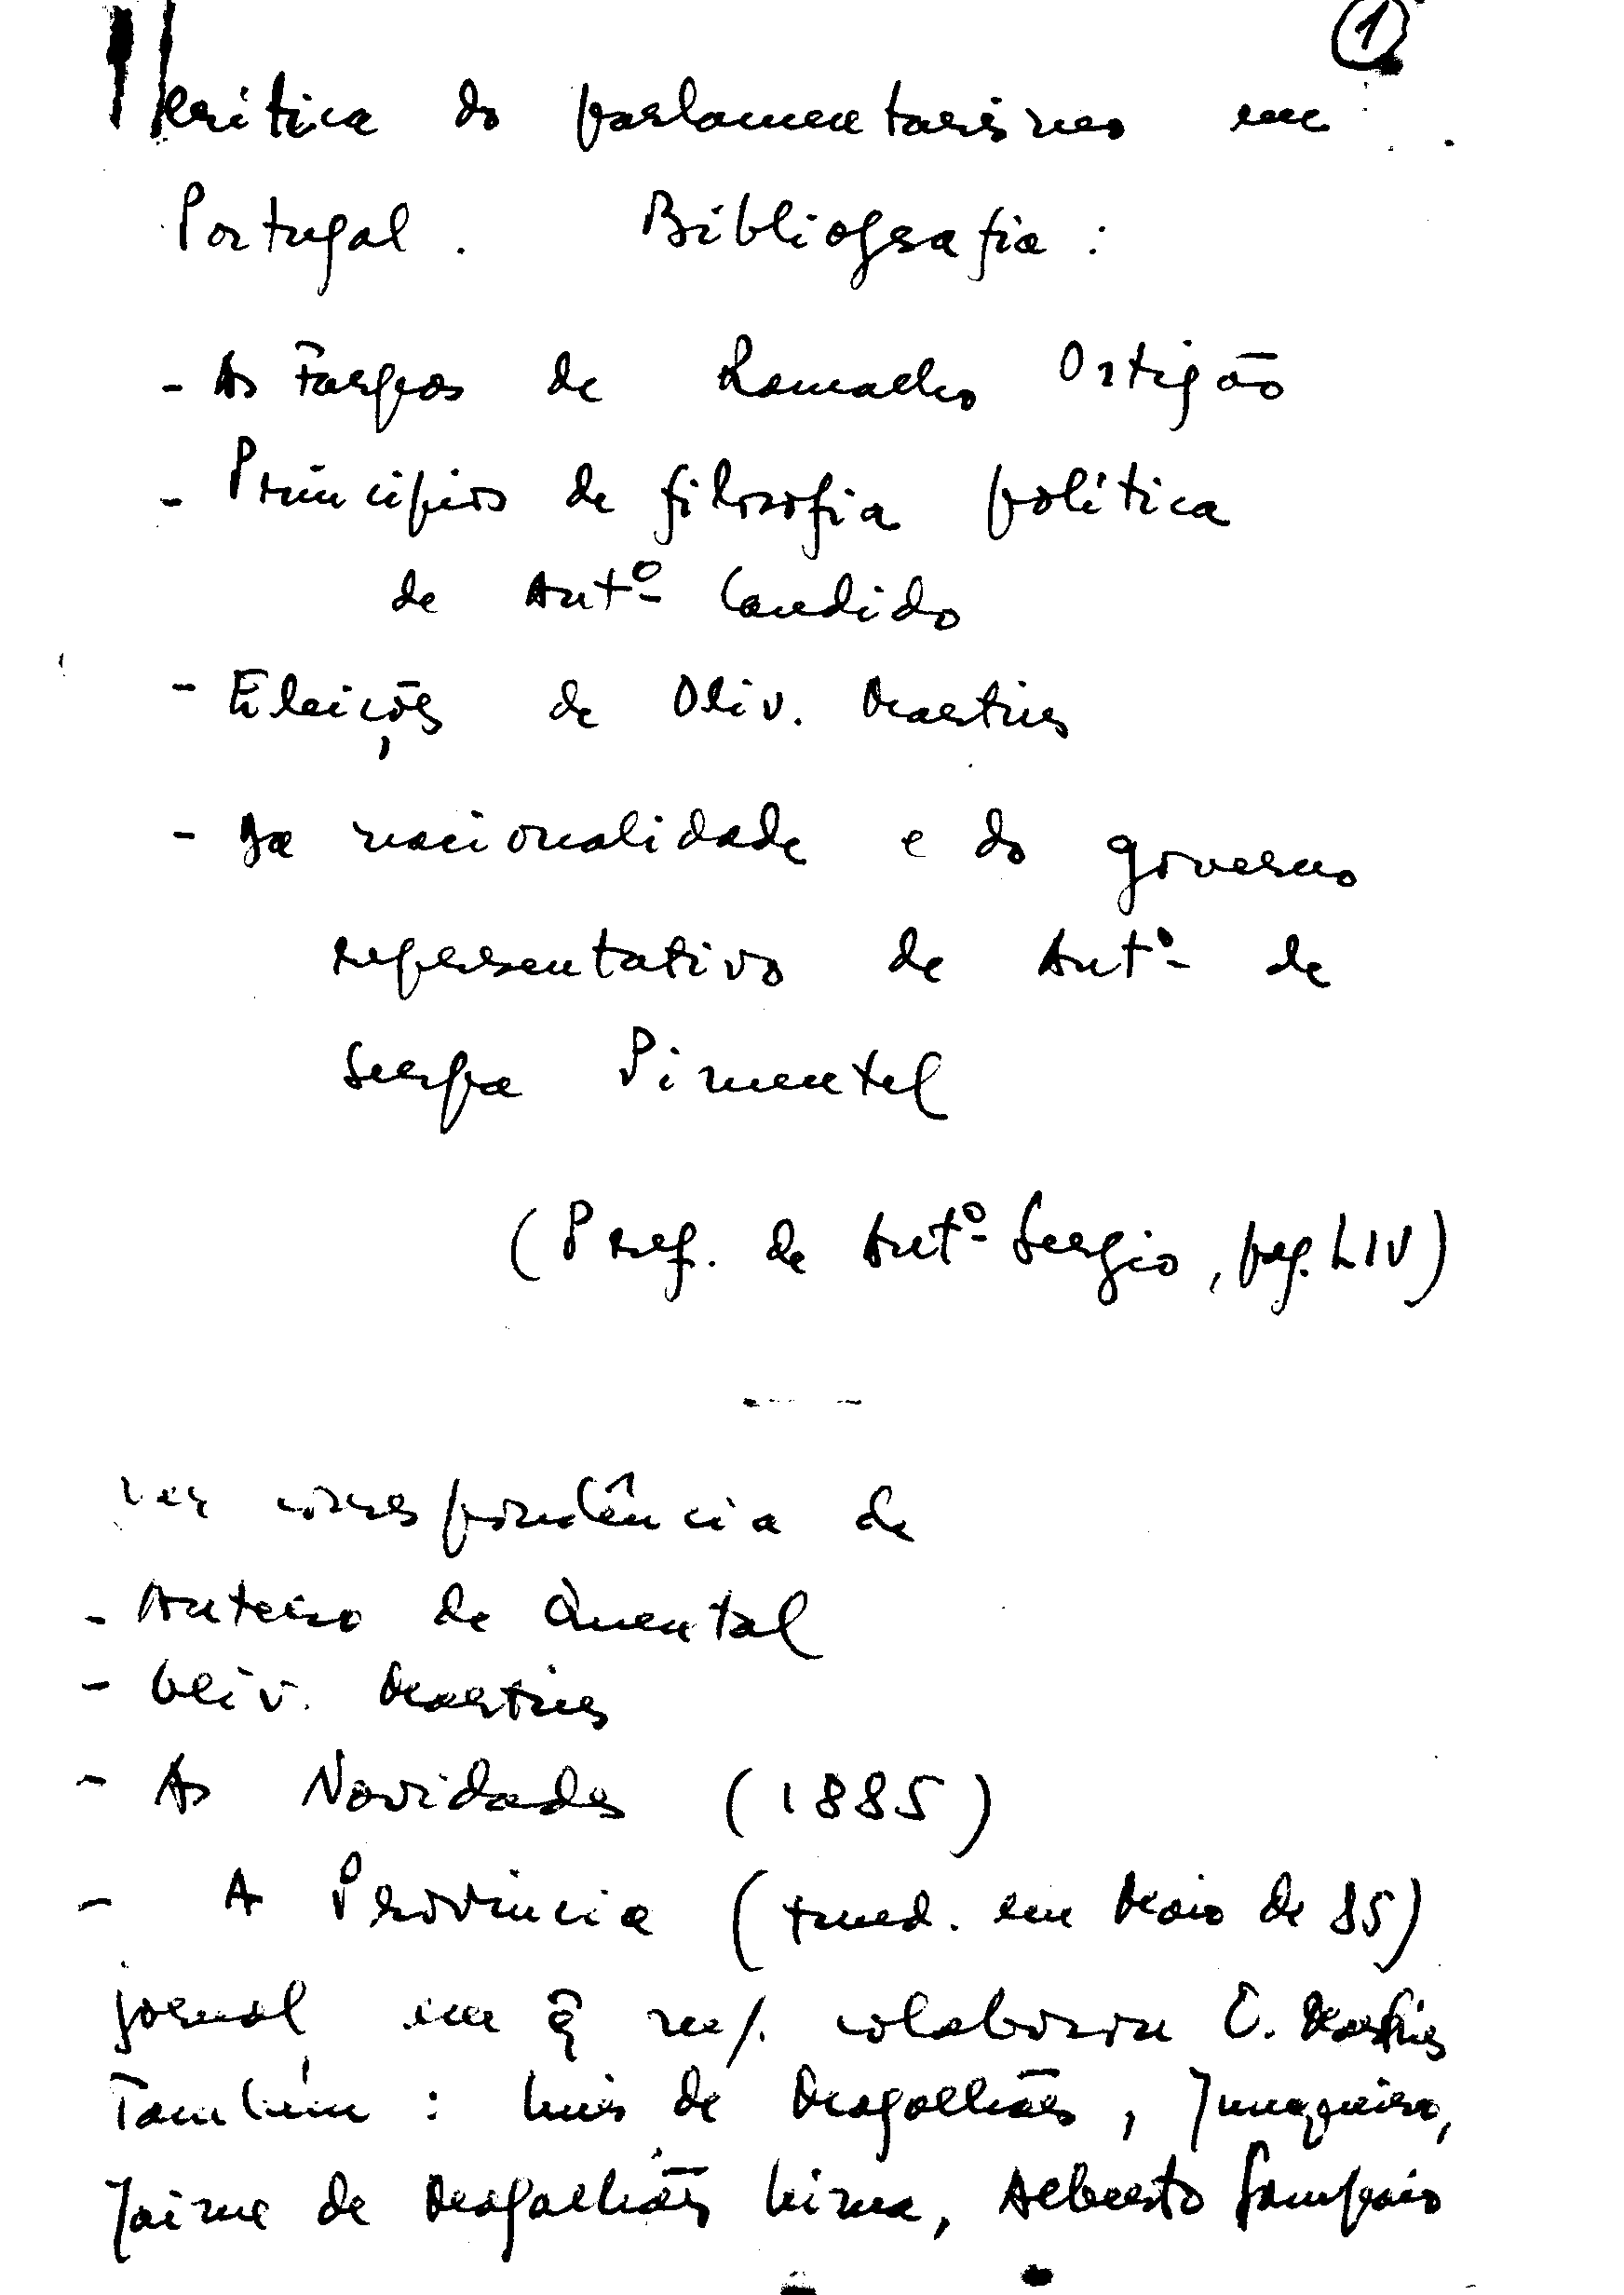 ①
Crítica do parlamentarismo em
Portugal. Bibliografia:
- As Farpas de Ramalho Ortigão
- Princípios de filosofia política
de Antº Candido
- Eleições de Oliv. Martins
- Da nacionalidade e do governo
representativo de Antº de
Serpa Pimentel
(Pref. de Antº Sergio, pag. LIV)
Ver correspondência de
- Antero de Quental
- Oliv. Martins
- As Novidades (1885)
- A Província (fund. em Maio de 85)
jornal em q̃ mº/. colaborou O. Martins
Também: Luis de Magalhães, Junqueiro,
Jaime de Magalhães Lima, Alberto Sampaio